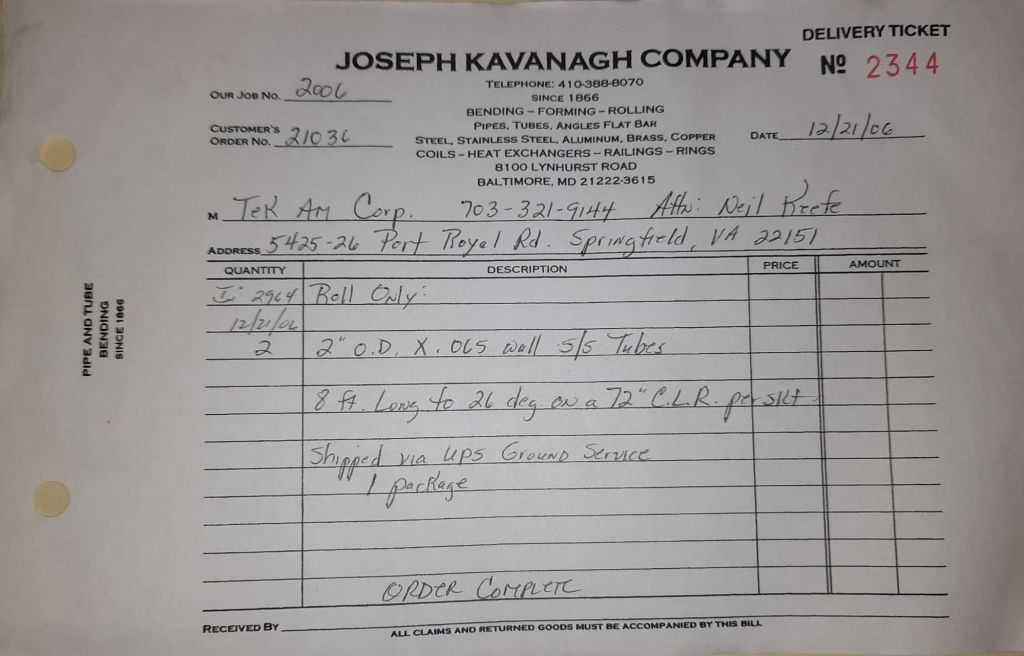 DELIVERY TICKET
JOSEPH KAVANAGH COMPANY
Nº 2344
OUR JOB NO. 2006
TELEPHONE: 410-388-8070
SINCE 1866
BENDING – FORMING – ROLLING
CUSTOMER'S ORDER NO. 21036
PIPES, TUBES, ANGLES FLAT BAR
STEEL, STAINLESS STEEL, ALUMINUM, BRASS, COPPER
DATE 12/21/06
COILS – HEAT EXCHANGERS – RAILINGS – RINGS
8100 LYNHURST ROAD
BALTIMORE, MD 21222-3615
M Tek Am Corp. 703-321-9144 Attn: Neil Keefe
ADDRESS 5425-26 Port Royal Rd. Springfield, VA 22151
QUANTITY DESCRIPTION PRICE AMOUNT
2964 Roll Only:
12/21/06
2 2" O.D. X .065 wall S/S Tubes
8 ft. Long to 26 deg. on a 72" C.L.R. per skt
Shipped via UPS Ground Service
1 package
ORDER COMPLETE
RECEIVED BY
ALL CLAIMS AND RETURNED GOODS MUST BE ACCOMPANIED BY THIS BILL
PIPE AND TUBE
BENDING
SINCE 1866